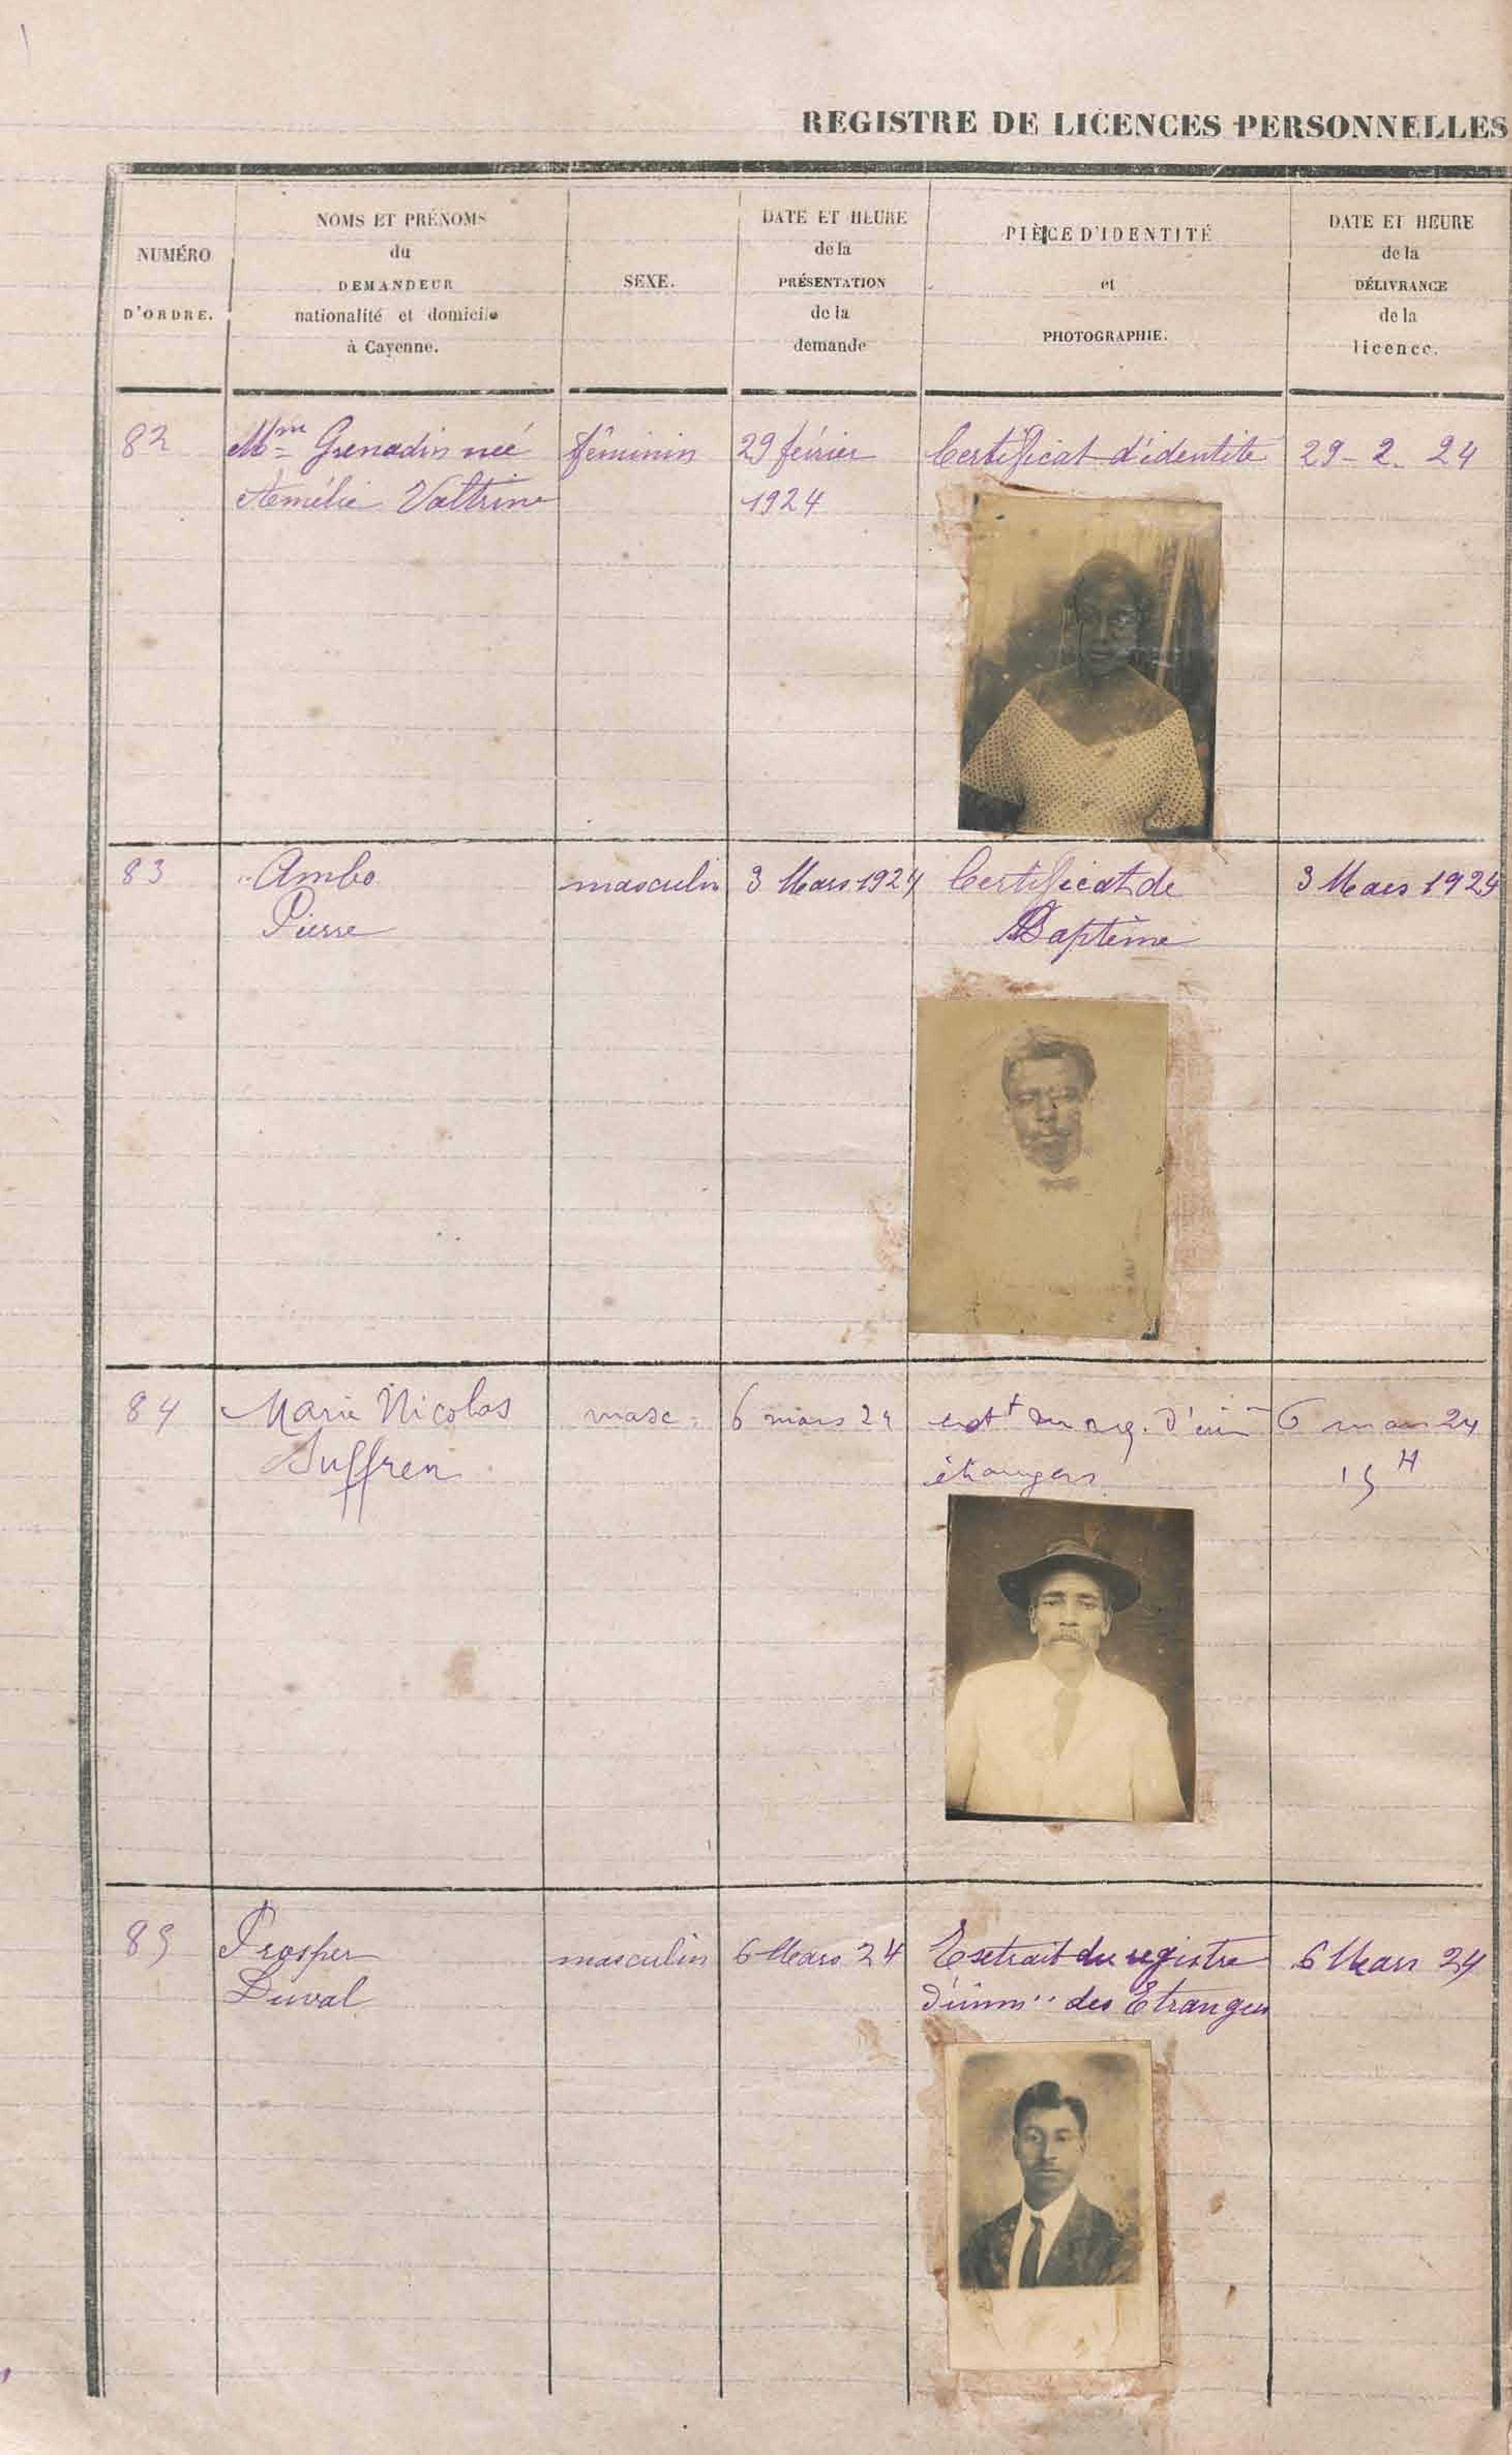 REGISTRE DE LICENCES PERSONNELLES
NUMÉRO
D'ORDRE.
NOMS ET PRÉNOMS
du
DEMANDEUR
nationalité et domicile
à Cayenne.
SEXE.
DATE ET HEURE
de la
PRÉSENTATION
de la
demande
PIÈCE D'IDENTITÉ
et
PHOTOGRAPHIE.
DATE ET HEURE
de la
DÉLIVRANCE
de la
licence.
82
Mme Grenadin née
Amélie Valtrine
féminin
29 février
1924
Certificat d'identité
29-2-24
83
Ambo
Pierre
masculin
3 Mars 1924
Certificat de
Baptême
3 Mars 1924
84
Marie Nicolas
Suffren
masc
6 mars 24
ext du reg. d'im
étrangers
6 mars 24
15 H
85
Prosper
Duval
masculin
6 Mars 24
Extrait du registre
d'imm des Etrangers
6 Mars 24